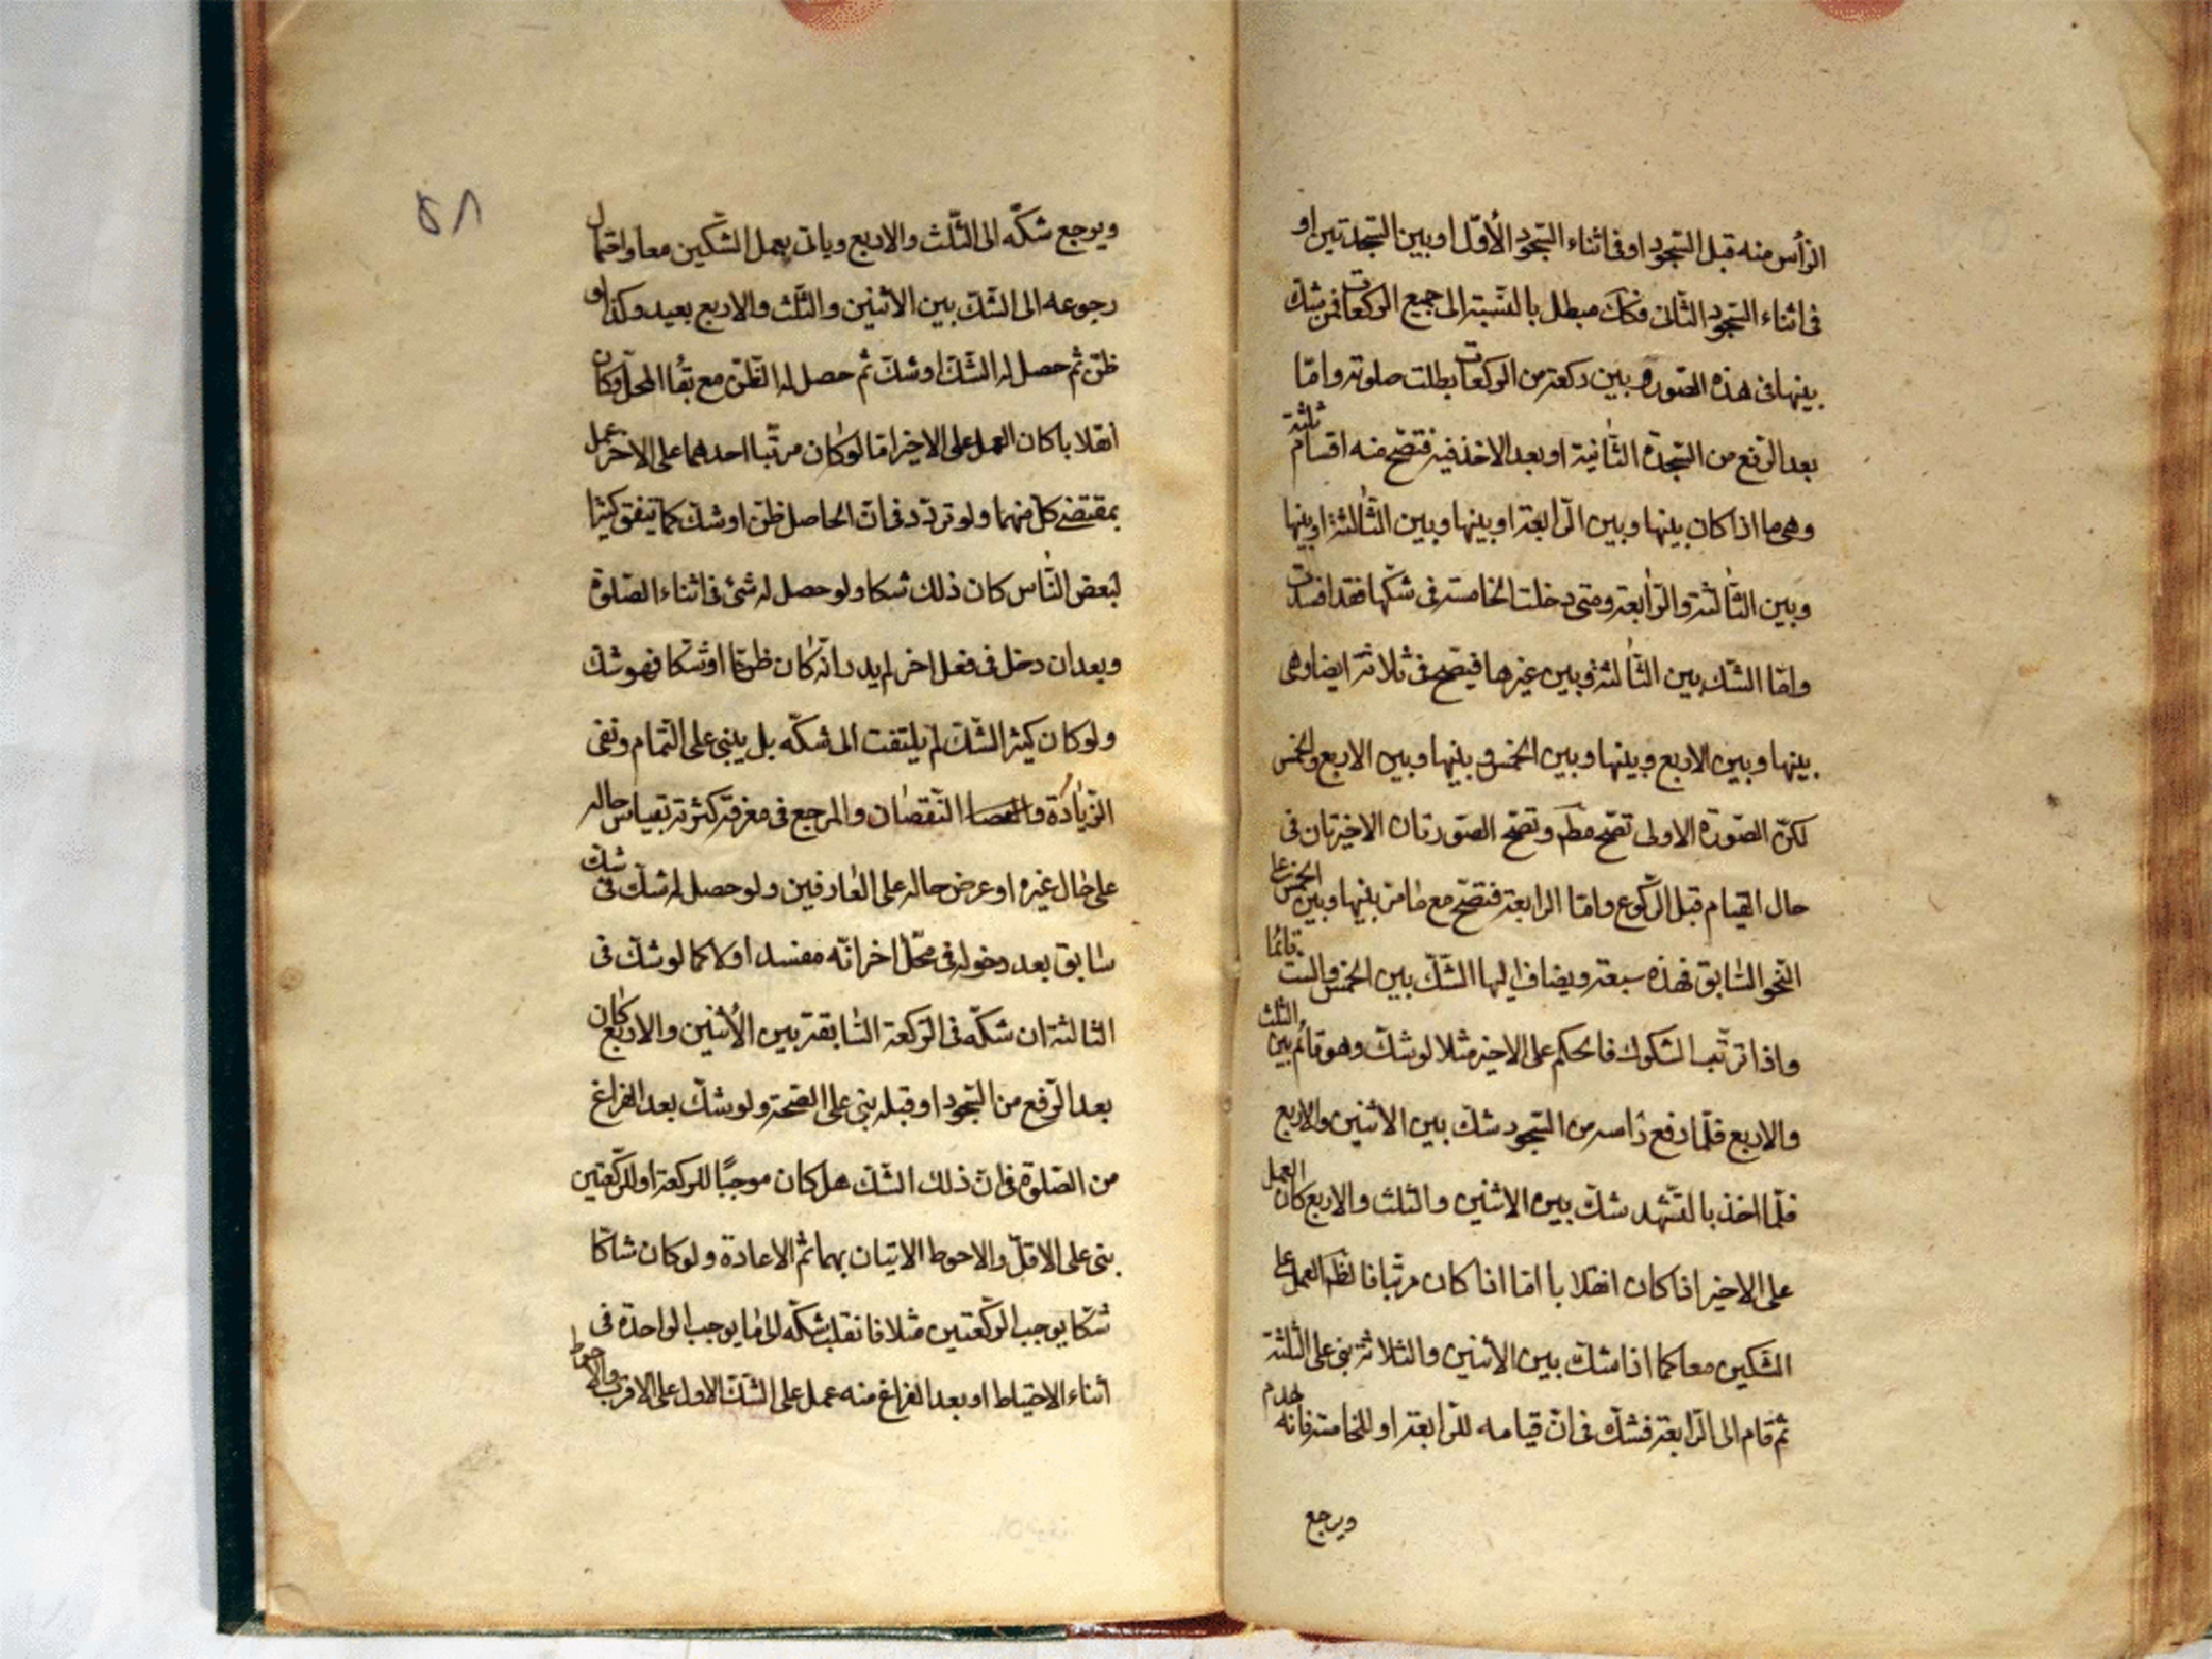 الرأس منه قبل السّجود او فى اثناء السّجود الأوّل او بين السّجدتين او
فى اثناء السّجود الثّانى فذلك مبطل بالنّسبة الى جميع الركعات فمن شك
بينها فى هذه الصّورة وبين ركعة من الركعات بطلت صلوته وامّا
بعد الرّفع من السّجدة الثّانية او بعد الاخذ فيه فتصحّ منه اقسام ثلثة
وهى ما اذا كان بينها وبين الرّابعة او بينها وبين الثّالثة او بينها
وبين الثّالثة والرّابعة ومتى دخلت الخامسة فى شكّها فقد افسدت
وامّا الشّك بين الثّالثة وبين غيرها فيصحّ فى ثلاثة ايضا وهى
بينها وبين الاربع وبينها وبين الخمس وبينها وبين الاربع والخمس
لكنّ الصّورة الاولى تصحّ مطَم وتصحّ الصّورتان الاخيرتان فى
حال القيام قبل الرّكوع وامّا الرابعة فتصحّ مع ما مرّ بينها وبين الخمس على
النّحو السّابق فهذه سبعة ويضاف اليها الشّكّ بين الخمس والستّ قائمًا
واذا ترتّب الشكوك فالحكم على الاخير مثلا لو شكّ وهو قائم بين الثلث
والاربع فلمّا رفع رأسه من السّجود شكّ بين الاثنين والاربع
فلمّا اخذ بالتّشهد شكّ بين الاثنين والثلث والاربع كان العمل
على الاخير اذا كان انقلابا امّا اذا كان مرتّبا فالظَم العمل على
الشكّين معا كما اذا شكّ بين الاثنين والثلاثة بنى على الثّلثة
ثم قام الى الرّابعة فشكّ فى انّ قيامه للرّابعة او للخامسة فانّه يهدم
ويرجع
٥٨
ويرجع شكّه الى الثّلث والاربع وياتى بعمل الشّكين معا واحتمال
رجوعه الى الشّكّ بين الاثنين والثّلث والاربع بعيد وكذا لو
ظنّ ثم حصل له الشّكّ او شكّ ثم حصل له الظّنّ مع بقاء المحلّ وكان
انقلابا كان العمل على الاخير امّا لو كان مرتّبا احدهما على الاخر عمل
بمقتضى كلّ منهما ولو تردّد فى انّ الحاصل ظنّ او شكّ كما يتفق كثيرا
لبعض النّاس كان ذلك شكا ولو حصل له شئ فى اثناء الصّلوة
وبعد ان دخل فى فعل اخر لم يدر انّه كان ظنّا او شكا فهو شكّ
ولو كان كثير الشّكّ لم يلتفت الى شكّه بل يبنى على التّمام ونفى
الزّيادة والنّقصان والمرجع فى معرفة كثرته بقياس حاله
على حال غيره او عرض حاله على العارفين ولو حصل له شكّ فى شكّ
سابق بعد دخوله فى محلّ اخر انّه مفسد او لا كما لو شكّ فى
الثالثة ان شكّه فى الرّكعة السّابقة بين الأثنين والاربع كان
بعد الرّفع من السّجود او قبله بنى على الصّحة ولو شكّ بعد الفراغ
من الصّلوة فى انّ ذلك الشّكّ هل كان موجبًا للركعة او للرّكعتين
بنى على الاقلّ والاحوط الاتيان بهما ثم الاعادة ولو كان شاكّا
شكّا يوجب الرّكعتين مثلا فانقلب شكّه الى ما يوجب الواحدة فى
اثناء الاحتياط او بعد الفراغ منه عمل على الشّكّ الاول على الاقرب والاحوط